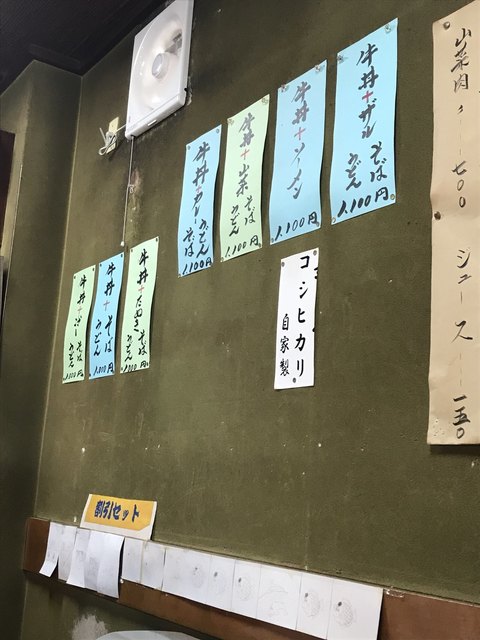 山菜肉うー七〇〇
ジュースー一五〇
牛丼+ザル
そば
うどん
1.100円
牛丼+ソーメン
1.100円
牛丼+山菜
そば
うどん
1.100円
牛丼+カレー
うどん
そば
1.100円
コシヒカリ
自家製
牛丼+たぬき
そば
うどん
1.000円
牛丼+そば
うどん
1.000円
牛丼+
そば
うどん
1.000円
割引セット